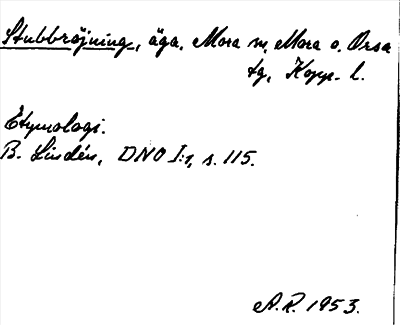 Stubbröjning, äga, Mora sn, Mora o. Orsa
tg, Kopp. l.
Etymologi.
B. Lindén, DNO I:1, s. 115.
A.R. 1953.